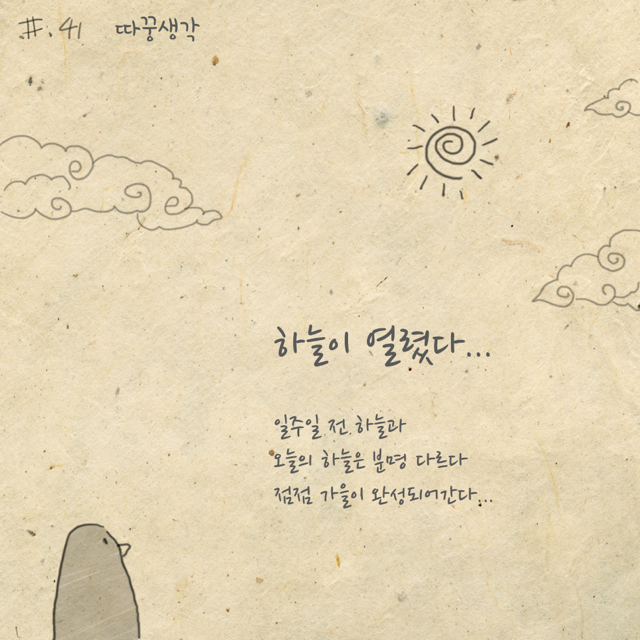 #.41 따꿍생각
하늘이 열렸다...
일주일 전 하늘과
오늘의 하늘은 분명 다르다
점점 가을이 완성되어간다...